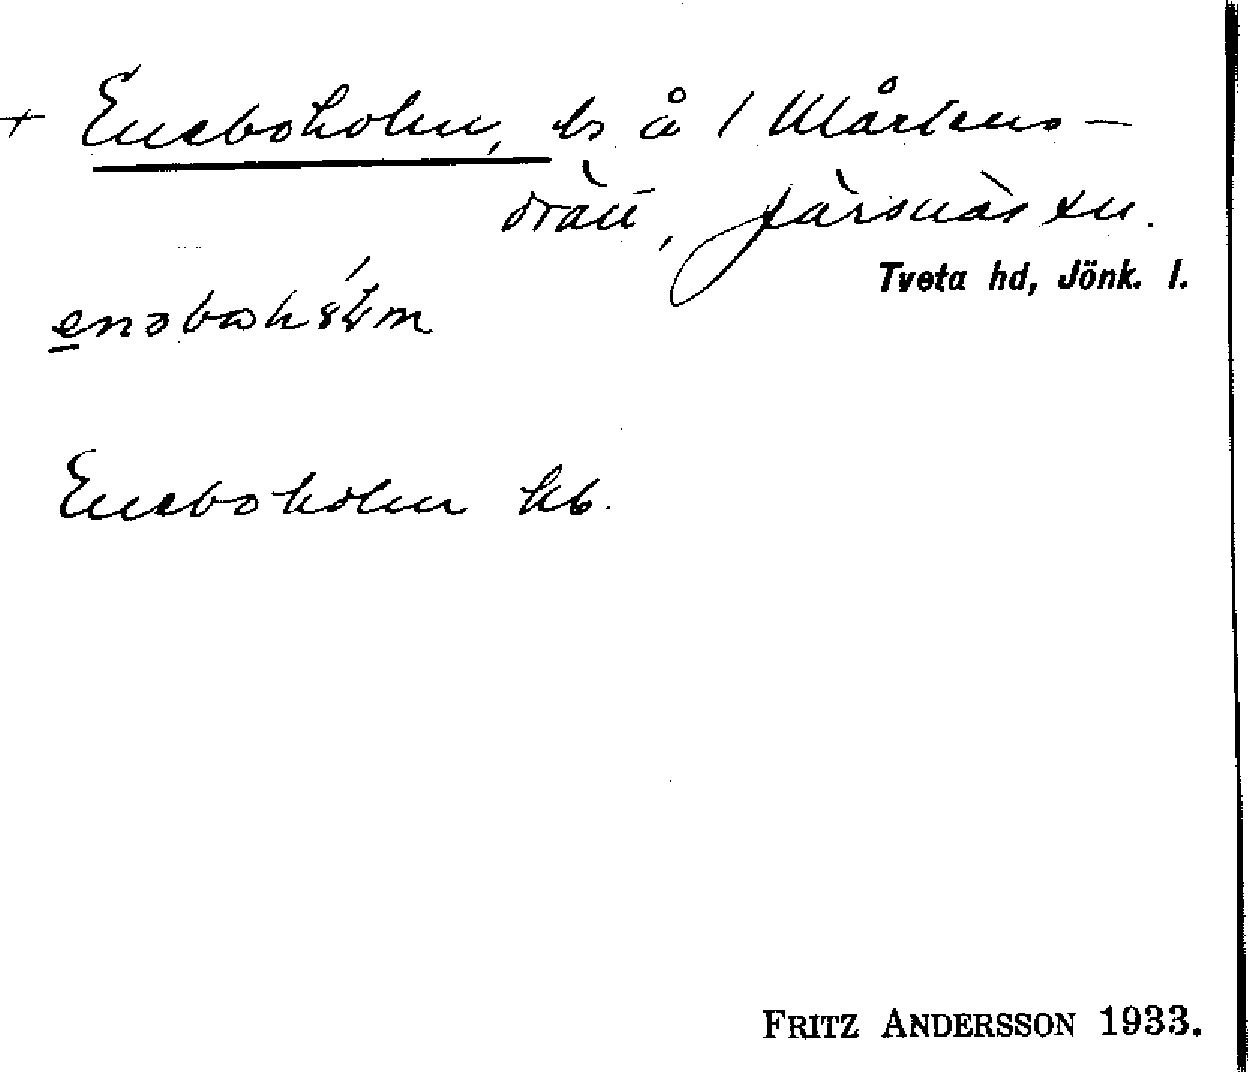 + Eneboholm, ts å 1 Mårtens-
drätt, Järsnäs sn.
Tveta hd, Jönk. l.
enəbohólm
Eneboholm kb.
FRITZ ANDERSSON 1933.